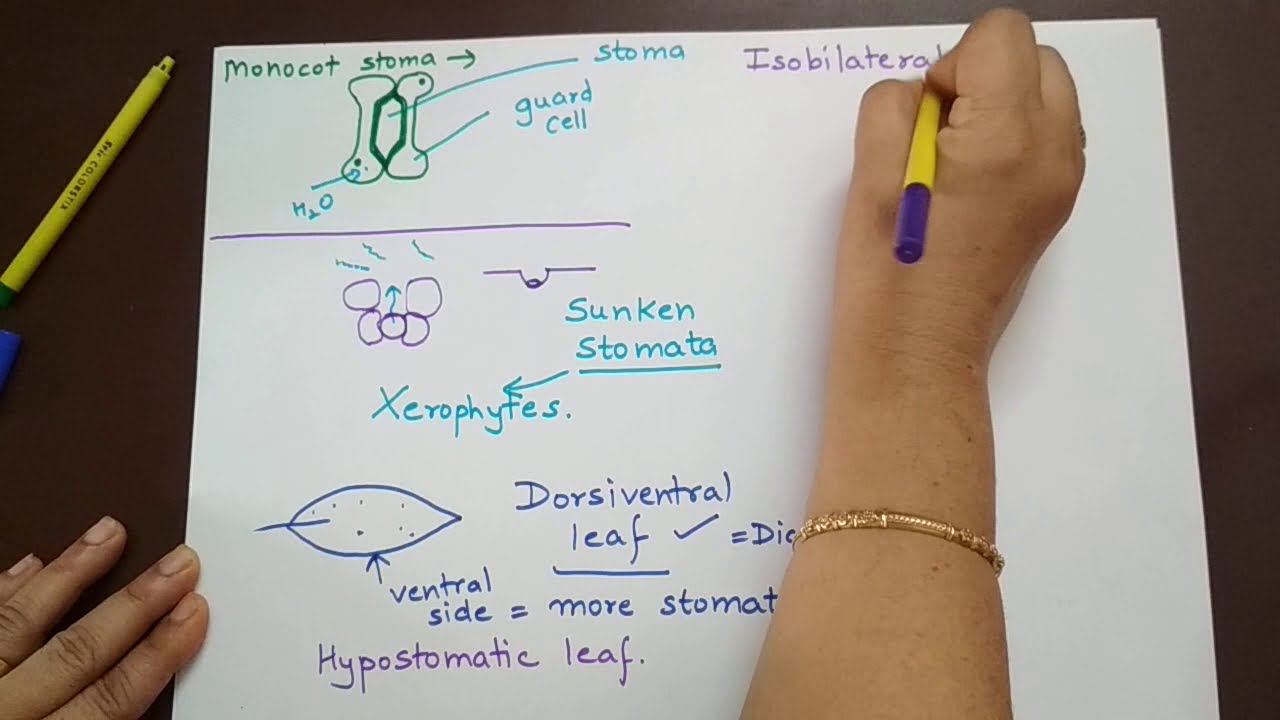 Monocot stoma →
stoma
guard
cell
H₂O
Sunken
Stomata
Xerophytes.
Dorsiventral
leaf ✓ = Dic
ventral
side = more stomat
Hypostomatic leaf.
Isobilateral